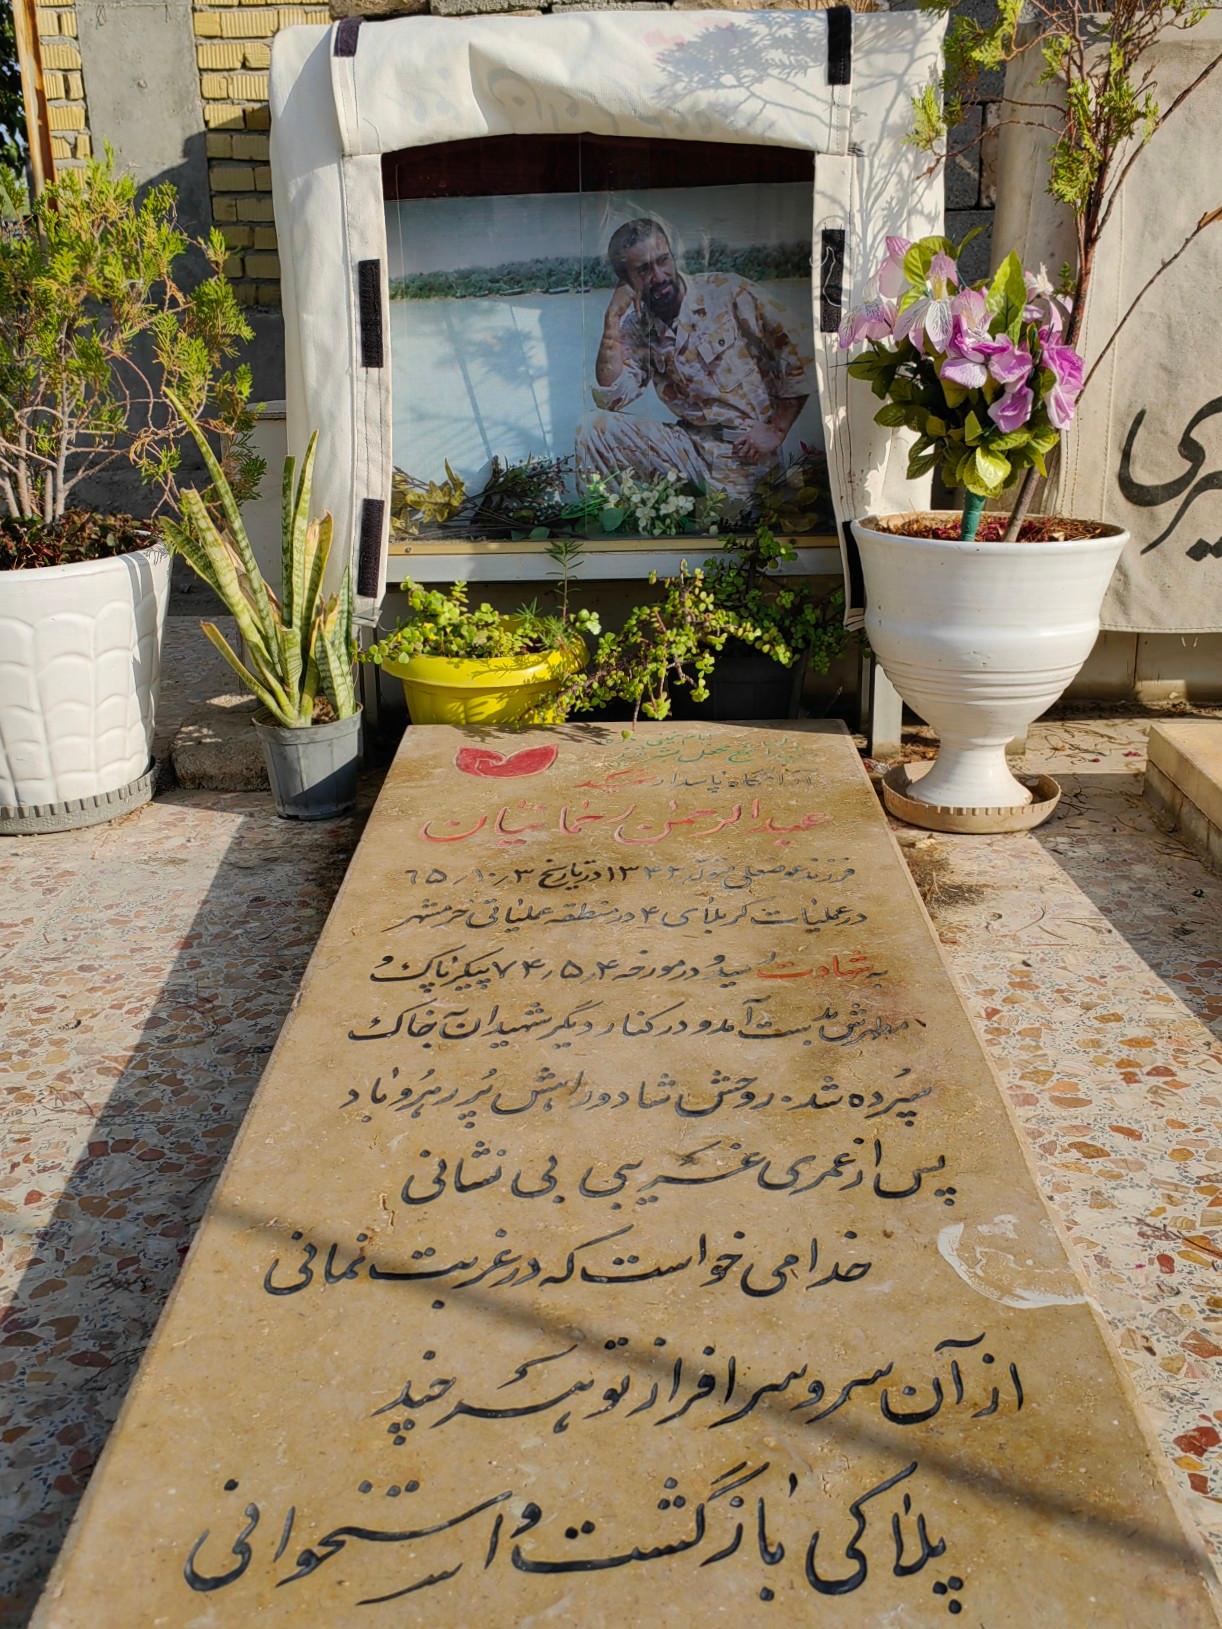 آرامگاه پاسدار شهید
عبدالرحمن رحمانیان
فرزند عوضعلی متولد ۱۳۴۲ در تاریخ ۶۵٫۱۰٫۳
در عملیات کربلای ۴ در منطقه عملیاتی خرمشهر
به شهادت رسید و در مورخه ۷۴٫۵٫۴ پیکر پاک و
مطهرش بدست آمد و در کنار دیگر شهیدان به خاک
سپرده شد. روحش شاد و راهش پُر رهرو باد
پس از عمری غریبی بی نشانی
خدا می خواست که در غربت نمانی
از آن سرو سرافراز تو هر چند
پلاکی باز گشت و استخوانی